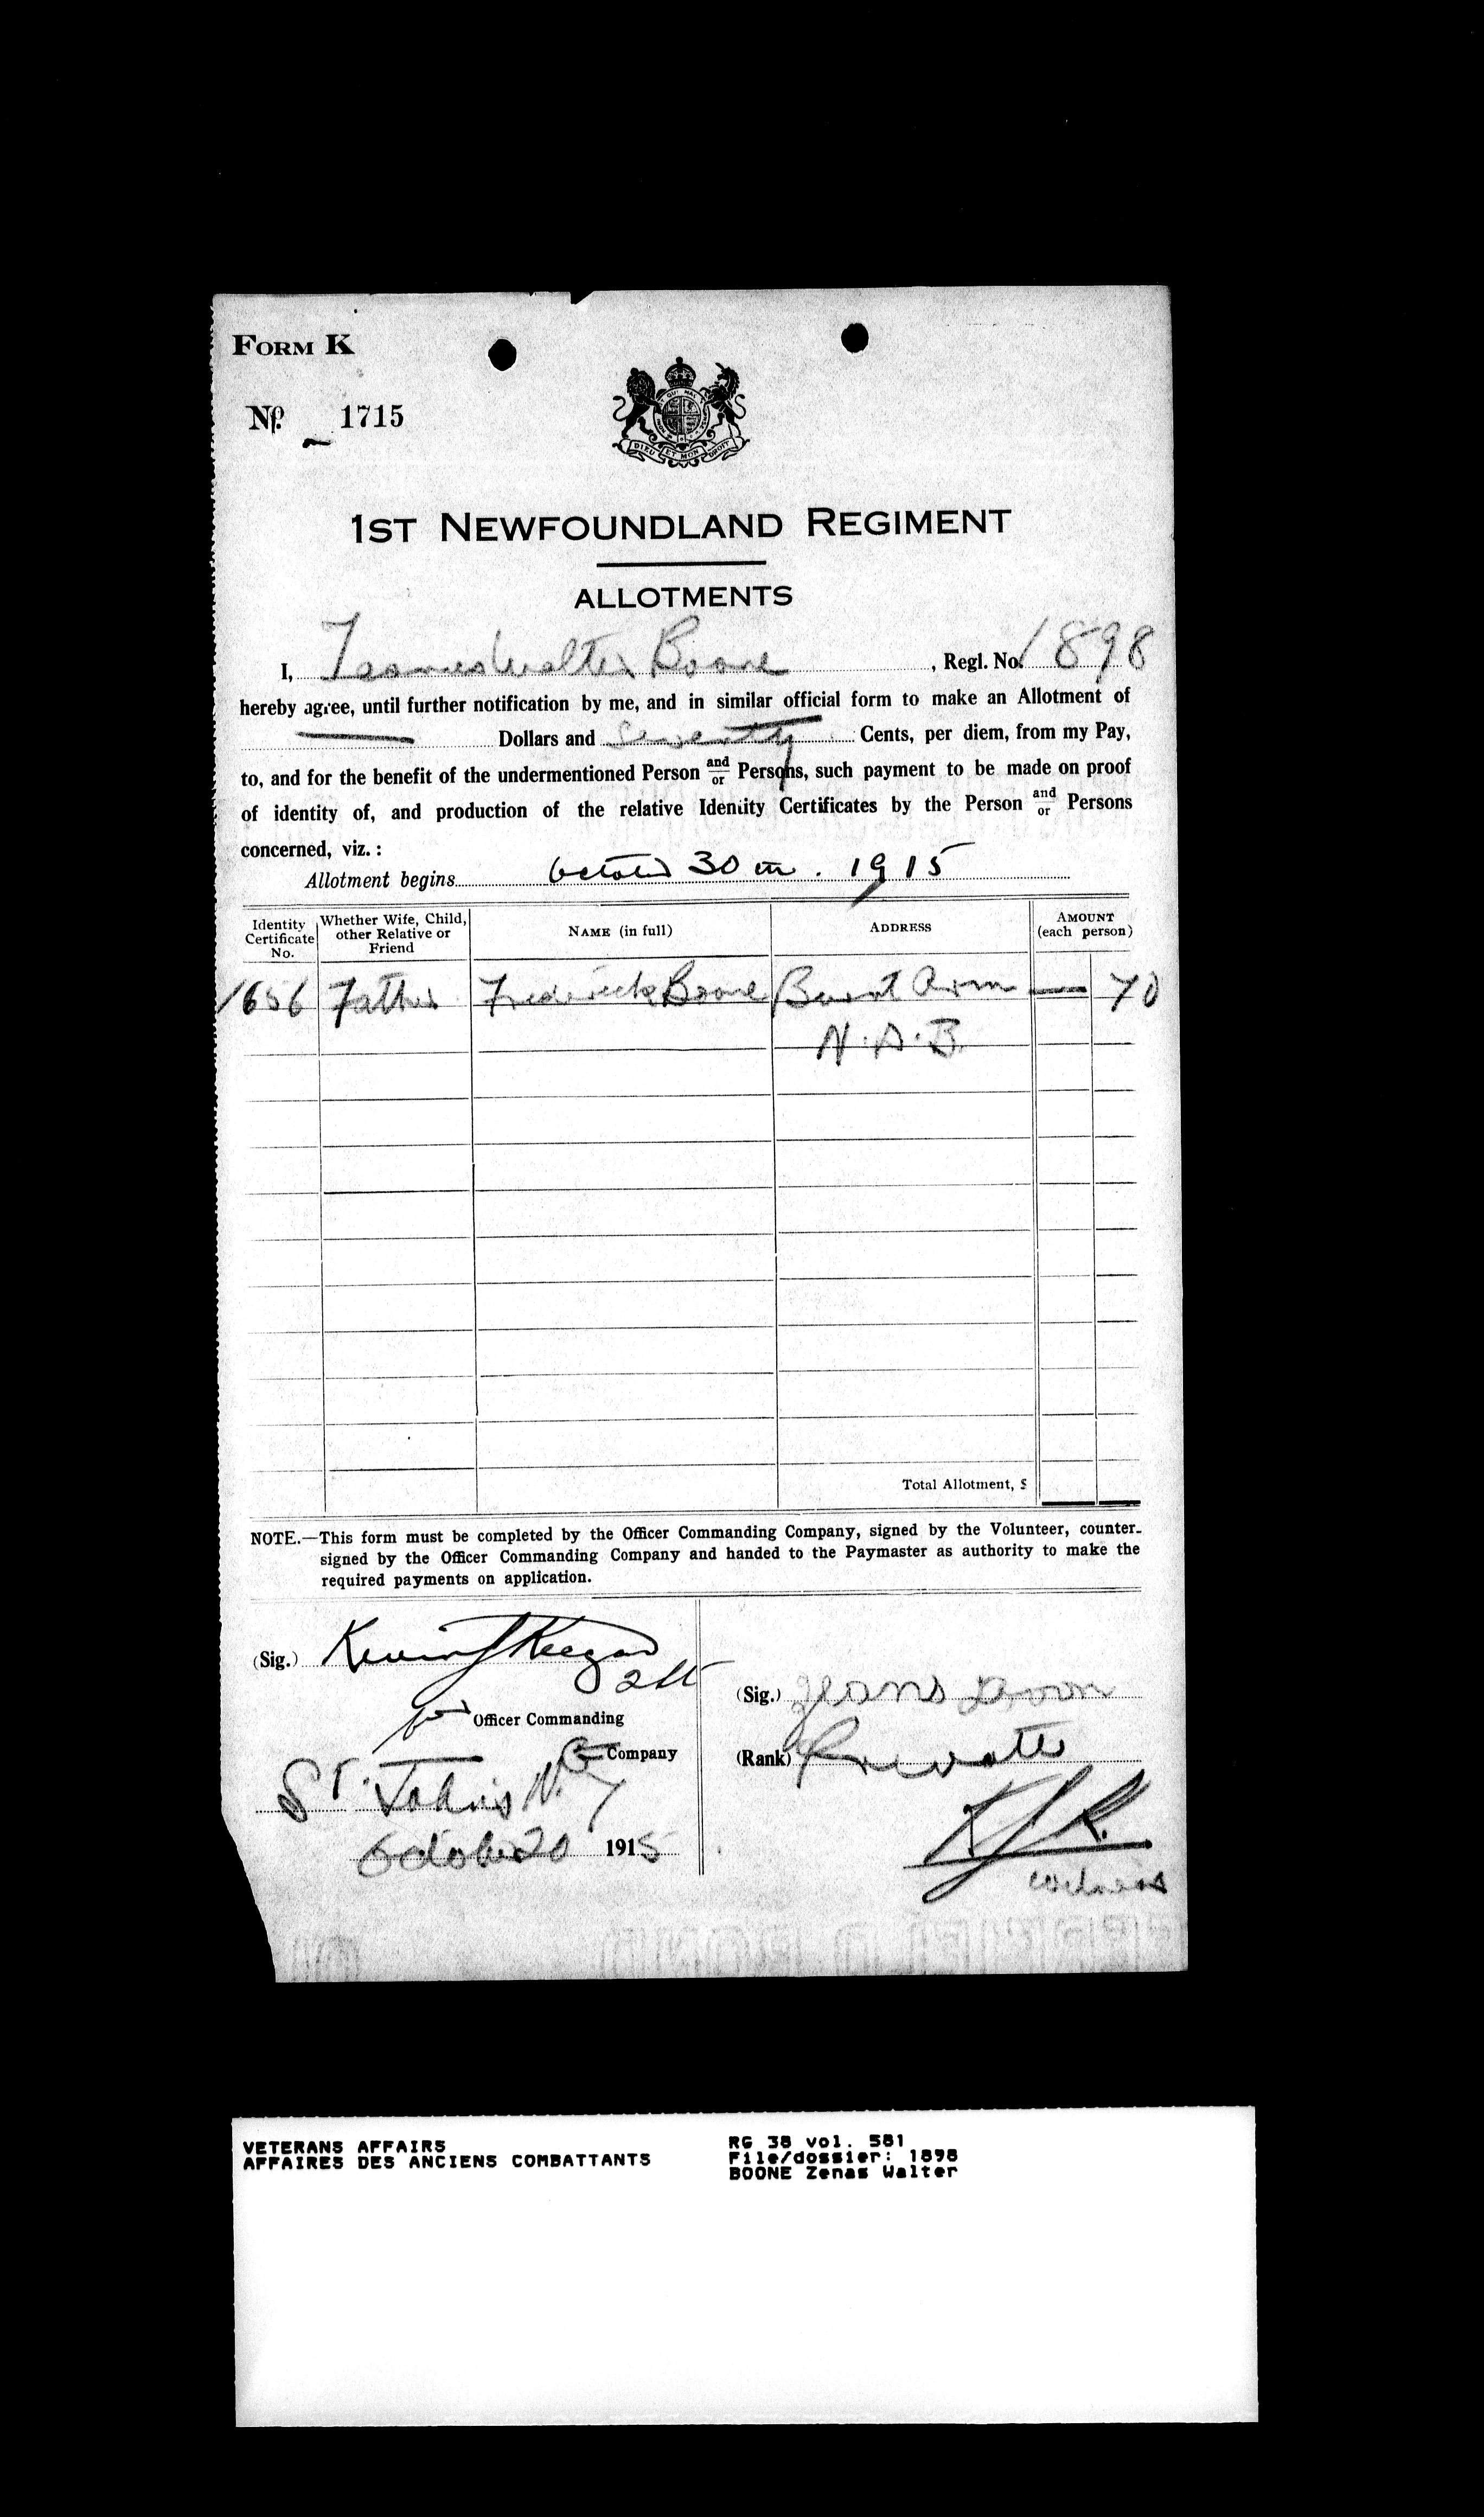 FORM K
No. 1715
DIEU ET MON DROIT
1ST NEWFOUNDLAND REGIMENT
ALLOTMENTS
I, Walter Boone, Regl. No. 1898
hereby agree, until further notification by me, and in similar official form to make an Allotment of
— Dollars and Seventy Cents, per diem, from my Pay,
to, and for the benefit of the undermentioned Person and/or Persons, such payment to be made on proof
of identity of, and production of the relative Identity Certificates by the Person and/or Persons
concerned, viz. :
Allotment begins October 30th. 1915
Identity Certificate No. Whether Wife, Child, other Relative or Friend NAME (in full) ADDRESS AMOUNT (each person)
1656 Father Frederick Boone Burnt Arm — 70
N.D.B.
Total Allotment, $
NOTE.—This form must be completed by the Officer Commanding Company, signed by the Volunteer, counter-
signed by the Officer Commanding Company and handed to the Paymaster as authority to make the
required payments on application.
(Sig.) Keegan
(Sig.)
Officer Commanding
Company
(Rank) Private
St. John's N.F.
October 20 1915
witness
VETERANS AFFAIRS
AFFAIRES DES ANCIENS COMBATTANTS
RG 38 vol. 581
File/dossier: 1898
BOONE Zenas Walter